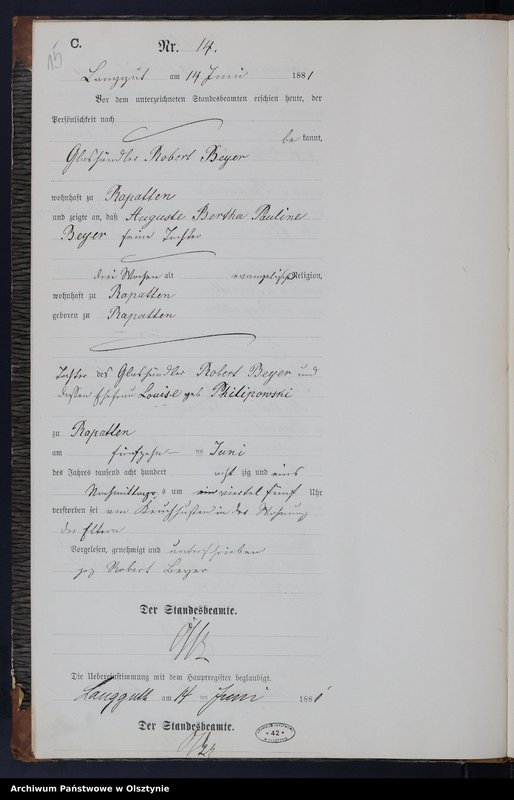 15
C.
Nr. 14.
Langgut am 14 Juni 1881
Vor dem unterzeichneten Standesbeamten erschien heute, der
Persönlichkeit nach
be kannt,
Glashändler Robert Beyer
wohnhaft zu Rapatten
und zeigte an, daß Auguste Bertha Pauline
Beyer seine Tochter
drei Wochen alt evangelisch Religion,
wohnhaft zu Rapatten
geboren zu Rapatten
Tochter des Glashändler Robert Beyer und
dessen Ehefrau Louise geb Philipowski
zu Rapatten
am fünfzehn ten Juni
des Jahres tausend acht hundert acht zig und eins
Nachmittags s um ein viertel fünf Uhr
verstorben sei am Keuchhusten in der Wohnung
der Eltern
Vorgelesen, genehmigt und unterschrieben
gez Robert Beyer
Der Standesbeamte.
Die Uebereinstimmung mit dem Hauptregister beglaubigt.
Langguth am 14 ten Juni 1881
Der Standesbeamte.
42
Archiwum Państwowe w Olsztynie